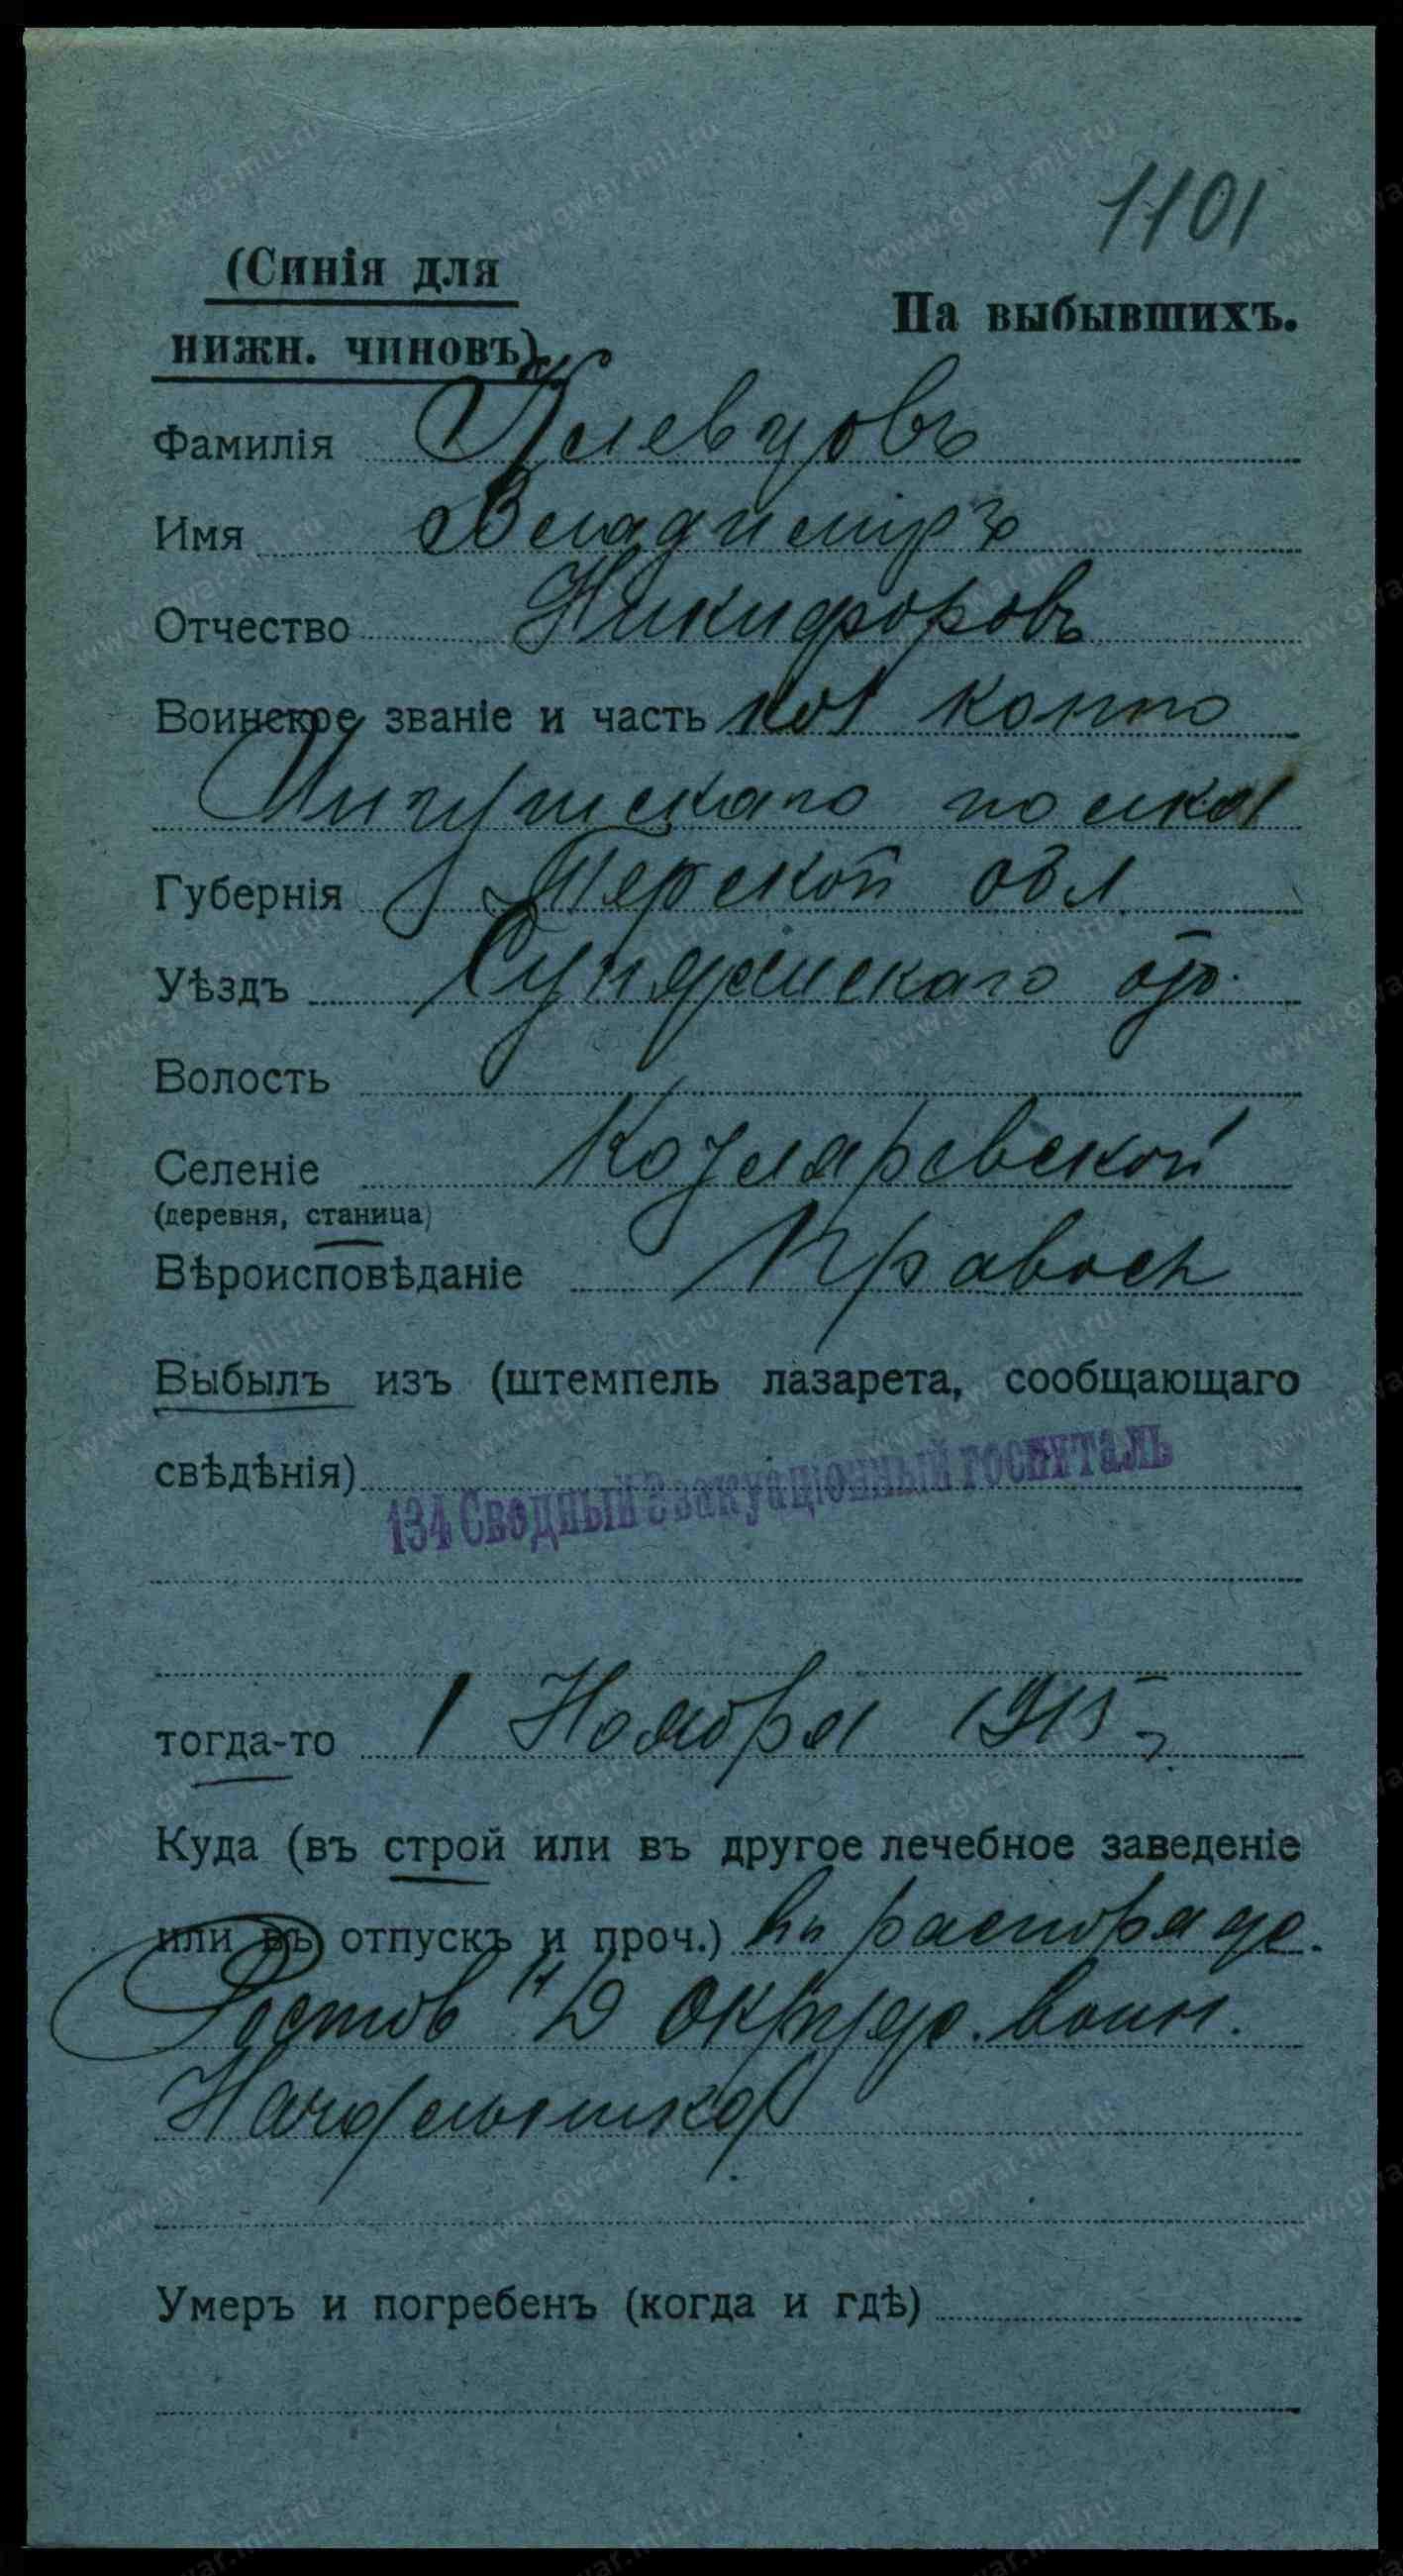 1101
(Синія для
нижн. чиновъ)
На выбывшихъ.
Фамилія Клевцовъ
Имя Владиміръ
Отчество Никифоровъ
Воинское званіе и часть конно
Ингушскаго полка
Губернія Терской обл
Уѣздъ Сунженскаго от.
Волость
Селеніе Котляревской
(деревня, станица)
Вѣроисповѣданіе Правосл
Выбылъ изъ (штемпель лазарета, сообщающаго
свѣдѣнія)
134 Сводный эвакуаціонный госпиталь
тогда-то 1 Ноября 1915 г.
Куда (въ строй или въ другое лечебное заведеніе
или въ отпускъ и проч.) въ распоряж.
Ростов н/Д окружн. воин.
Начальника
Умеръ и погребенъ (когда и гдѣ)
www.gwar.mil.ru